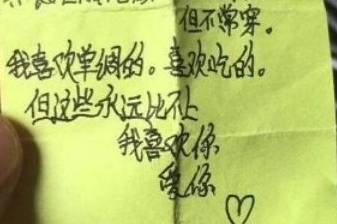 但不常穿。
我喜欢单绸的。喜欢吃的。
但这些永远比不上
我喜欢你
爱你